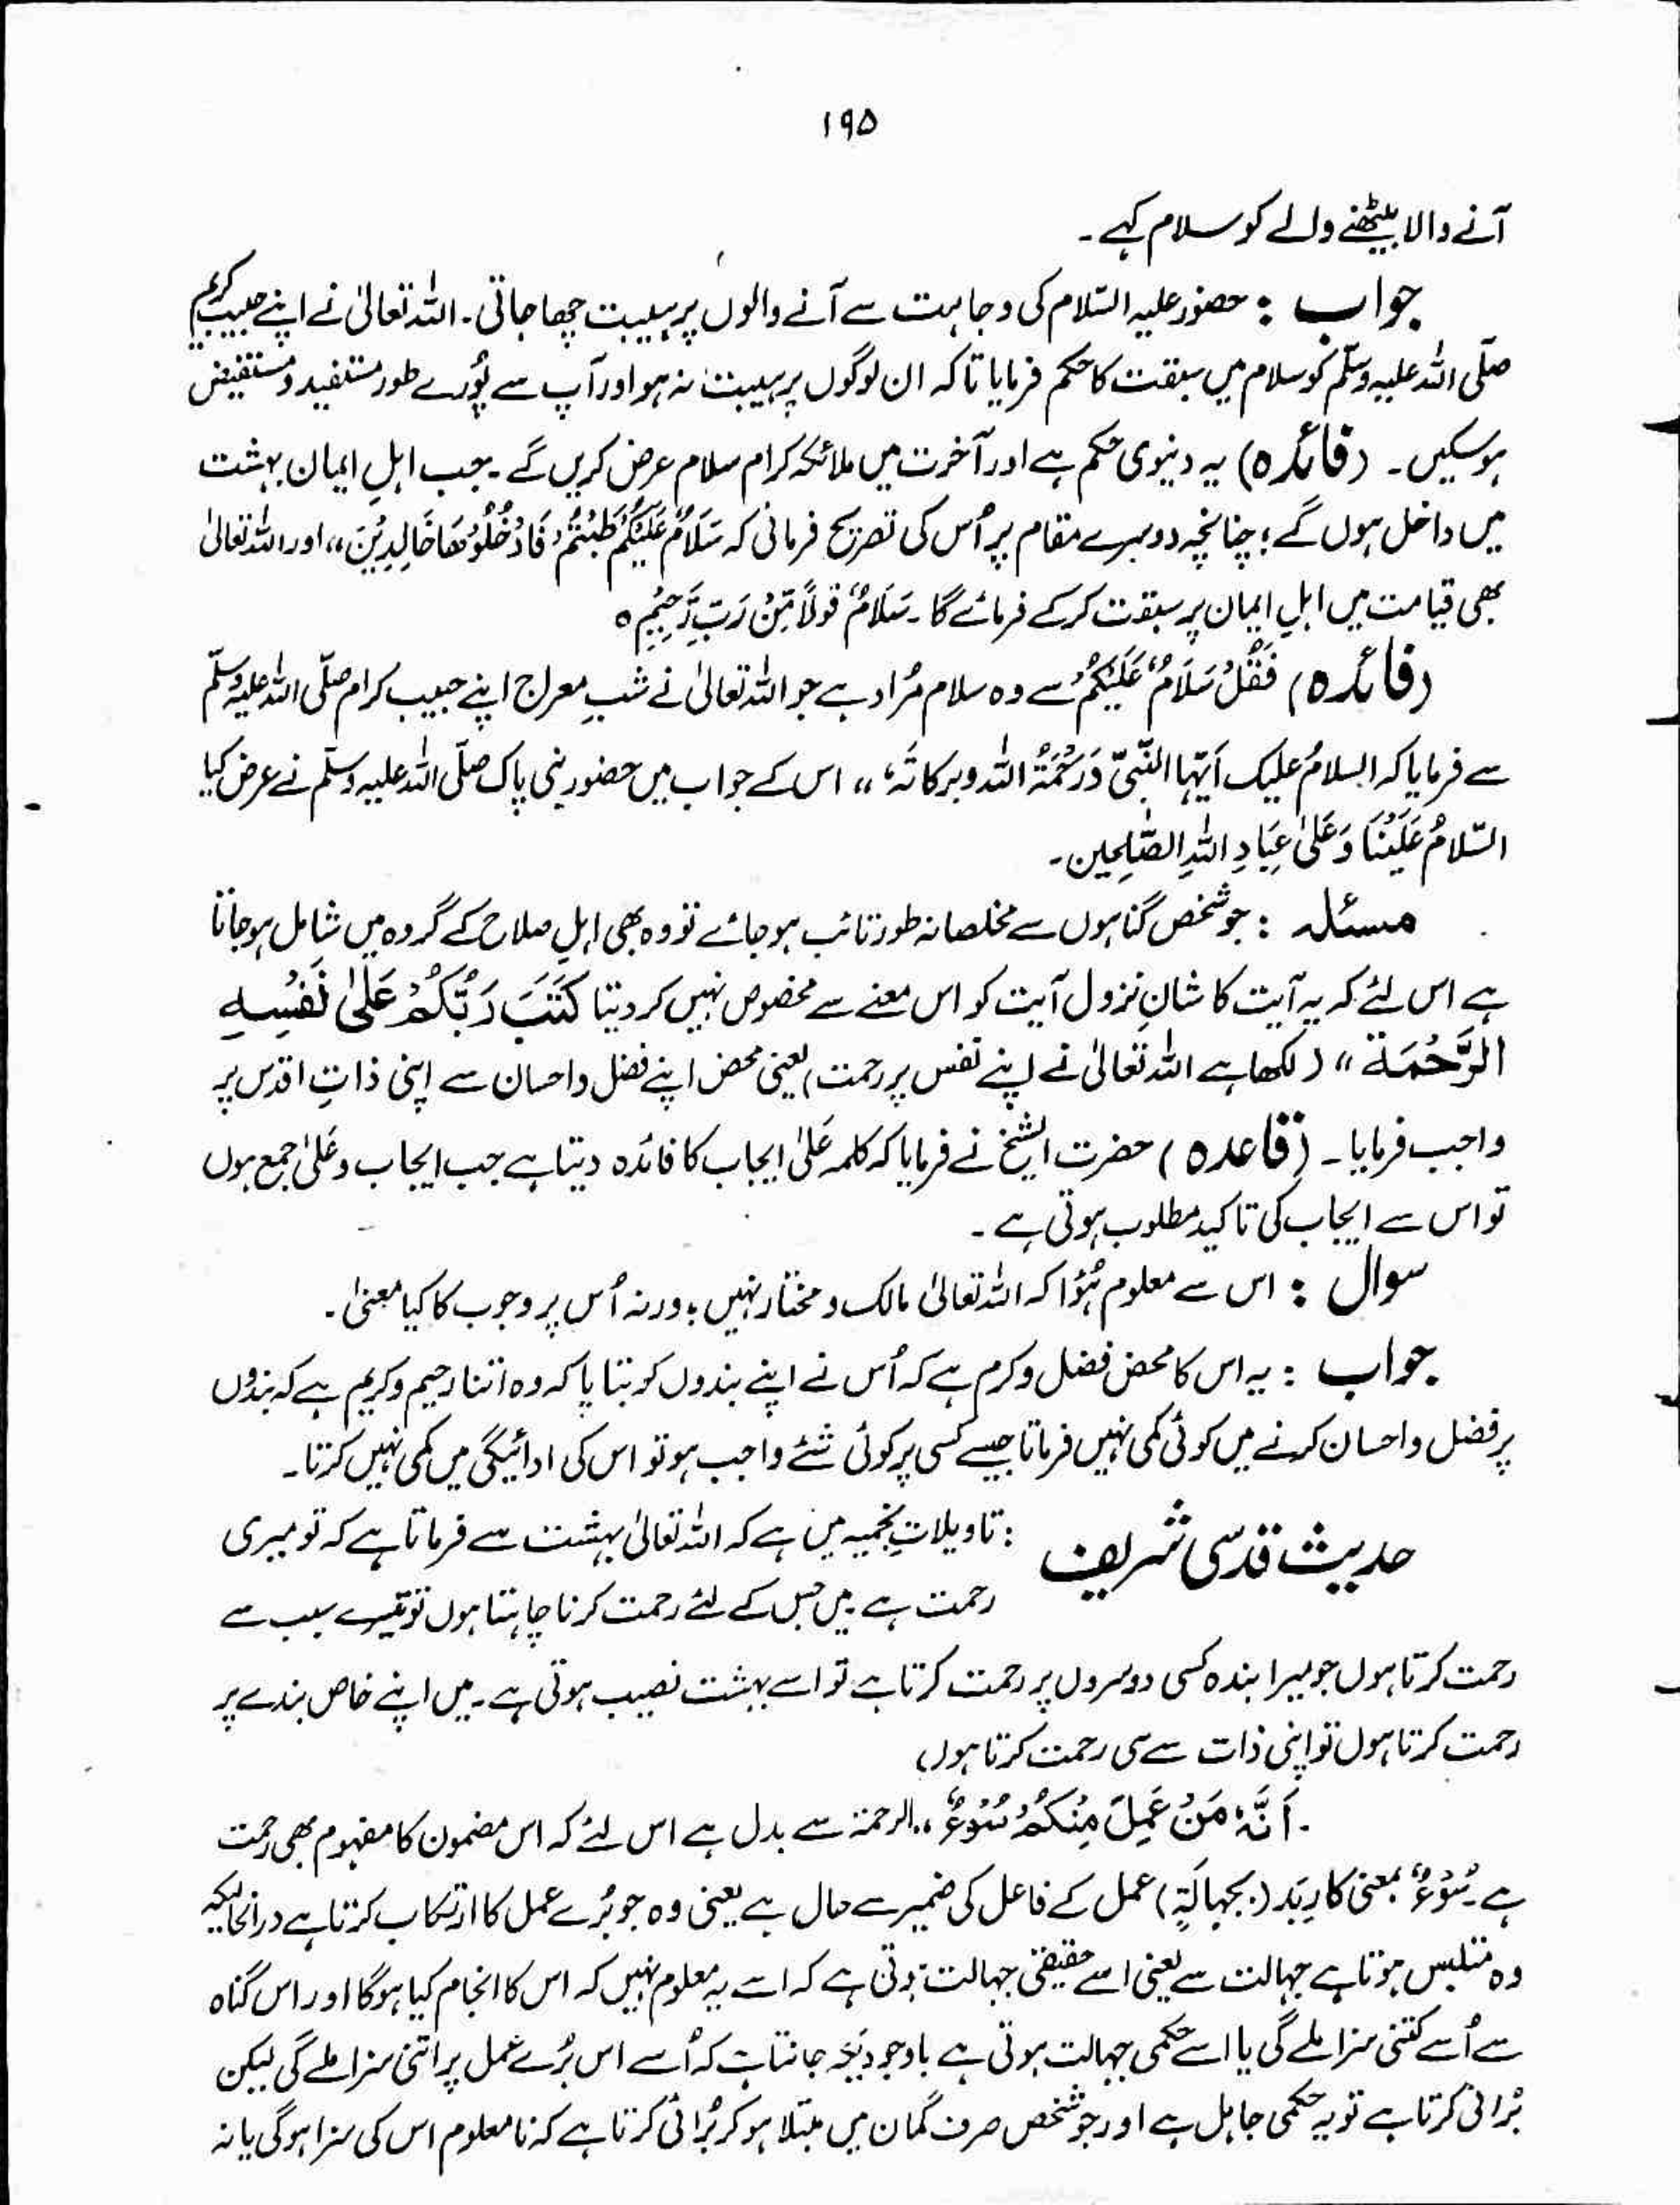 ۱۹۵
آنے والا بیٹھنے والے کو سلام کہے۔
جواب : حضور علیہ السّلام کی وجاہت سے آنے والوں پر ہیبت چھا جاتی۔ اللہ تعالیٰ نے اپنے حبیب کریم
صلّی اللہ علیہ وسلّم کو سلام میں سبقت کا حکم فرمایا تاکہ ان لوگوں پر ہیبت نہ ہو اور آپ سے پُورے طور مستفید و مستفیض
ہو سکیں۔ (فائدہ) یہ دنیوی حکم ہے اور آخرت میں ملائکہ کرام سلام عرض کریں گے۔ جب اہلِ ایمان بہشت
میں داخل ہوں گے؛ چنانچہ دوسرے مقام پر اُس کی تصریح فرمائی کہ سَلَامٌ عَلَیْکُمْ طِبْتُمْ فَادْخُلُوْھَا خَالِدِیْنَ،، اور اللہ تعالیٰ
بھی قیامت میں اہلِ ایمان پر سبقت کر کے فرمائے گا۔ سَلَامٌ قَوْلًا مِّنْ رَبٍّ رَّحِیْمٍ ہ
(فائدہ) فَقُلْ سَلَامٌ عَلَیْکُمْ سے وہ سلام مُراد ہے جو اللہ تعالیٰ نے شبِ معراج اپنے حبیب کرام صلّی اللہ علیہ وسلّم
سے فرمایا کہ السلامُ علیک اَیّہا النَّبِیّ وَرَحْمَۃُ اللہ وبرکاتہٗ،، اس کے جواب میں حضور نبی پاک صلّی اللہ علیہ وسلّم نے عرض کیا
السّلامُ عَلَیْنَا وَعَلٰی عِبَادِ اللہِ الصّٰلِحِین۔
مسئلہ : جو شخص گناہوں سے مخلصانہ طور تائب ہو جائے تو وہ بھی اہلِ صلاح کے گروہ میں شامل ہو جاتا
ہے اس لئے کہ یہ آیت کا شانِ نزول آیت کو اس معنے سے مخصوص نہیں کر دیتا کَتَبَ رَبُّکُمْ عَلٰی نَفْسِہِ
الرَّحْمَۃَ،، (لکھا ہے اللہ تعالیٰ نے اپنے نفس پر رحمت) یعنی محض اپنے فضل و احسان سے اپنی ذاتِ اقدس پر
واجب فرمایا۔ (قاعدہ) حضرت الشیخ نے فرمایا کہ کلمہ عَلٰی ایجاب کا فائدہ دیتا ہے جب ایجاب و عَلٰی جمع ہوں
تو اس سے ایجاب کی تاکید مطلوب ہوتی ہے۔
سوال : اس سے معلوم ہُوا کہ اللہ تعالیٰ مالک و مختار نہیں؛ ورنہ اُس پر وجوب کا کیا معنیٰ۔
جواب : یہ اس کا محض فضل و کرم ہے کہ اُس نے اپنے بندوں کو بتایا کہ وہ اتنا رحیم و کریم ہے کہ بندوں
پر فضل و احسان کرنے میں کوئی کمی نہیں فرماتا جیسے کسی پر کوئی شئے واجب ہو تو اس کی ادائیگی میں کمی نہیں کرتا۔
حدیث قدسی شریف : تاویلاتِ نجمیہ میں ہے کہ اللہ تعالیٰ بہشت سے فرماتا ہے کہ تو میری
رحمت ہے۔ میں جس کے لئے رحمت کرنا چاہتا ہوں تو تیرے سبب سے
رحمت کرتا ہوں جو میرا بندہ کسی دوسروں پر رحمت کرتا ہے تو اسے بہشت نصیب ہوتی ہے۔ میں اپنے خاص بندے پر
رحمت کرتا ہوں تو اپنی ذات سے ہی رحمت کرتا ہوں)
۔ اَنَّہٗ مَنْ عَمِلَ مِنْکُمْ سُوْءً،، الرحمۃ سے بدل ہے اس لئے کہ اس مضمون کا مفہوم بھی رحمت
ہے۔ سُوْءً بمعنی کارِ بَد (بجہالَۃٍ) عمل کے فاعل کی ضمیر سے حال ہے یعنی وہ جو بُرے عمل کا ارتکاب کرتا ہے درانحالیکہ
وہ متلبس ہوتا ہے جہالت سے یعنی اسے حقیقی جہالت ہوتی ہے کہ اسے یہ معلوم نہیں کہ اس کا انجام کیا ہوگا اور اس گناہ
سے اُسے کتنی سزا ملے گی یا اسے حکمی جہالت ہوتی ہے باوجودیکہ جانتا ہے کہ اُسے اس بُرے عمل پر اتنی سزا ملے گی لیکن
بُرائی کرتا ہے تو یہ حکمی جاہل ہے اور جو شخص صرف گمان میں مبتلا ہو کر بُرائی کرتا ہے کہ نامعلوم اس کی سزا ہوگی یا نہ